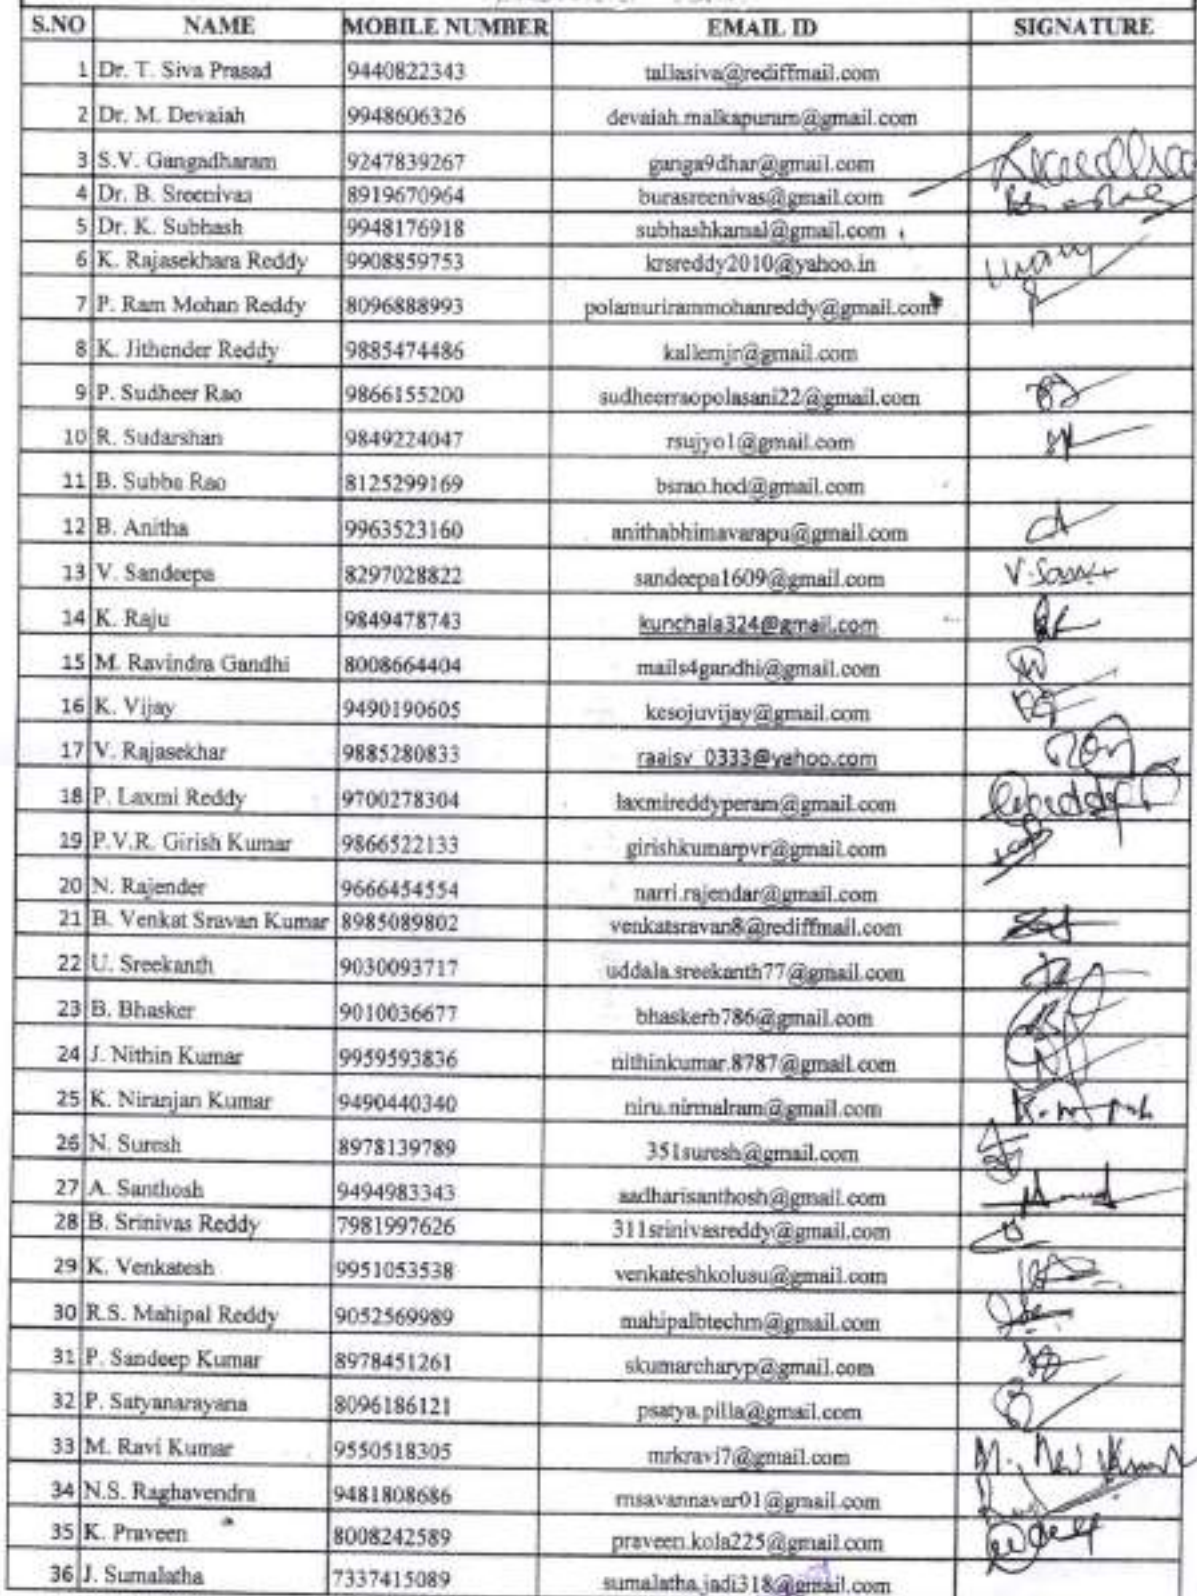 S.NO NAME MOBILE NUMBER EMAIL ID SIGNATURE
1 Dr. T. Siva Prasad 9440822343 tallasiva@rediffmail.com
2 Dr. M. Devaiah 9948606326 devaiah.malkapuram@gmail.com
3 S.V. Gangadharam 9247839267 ganga9dhar@gmail.com
4 Dr. B. Sreenivas 8919670964 burasreenivas@gmail.com
5 Dr. K. Subhash 9948176918 subhashkamal@gmail.com
6 K. Rajasekhara Reddy 9908859753 krsreddy2010@yahoo.in
7 P. Ram Mohan Reddy 8096888993 polamurirammohanreddy@gmail.com
8 K. Jithender Reddy 9885474486 kallemjr@gmail.com
9 P. Sudheer Rao 9866155200 sudheerraopolasani22@gmail.com
10 R. Sudarshan 9849224047 rsujyo1@gmail.com
11 B. Subba Rao 8125299169 bsrao.hod@gmail.com
12 B. Anitha 9963523160 anithabhimavarapu@gmail.com
13 V. Sandeepa 8297028822 sandeepa1609@gmail.com
14 K. Raju 9849478743 kunchala324@gmail.com
15 M. Ravindra Gandhi 8008664404 mails4gandhi@gmail.com
16 K. Vijay 9490190605 kesojuvijay@gmail.com
17 V. Rajasekhar 9885280833 raajsv_0333@yahoo.com
18 P. Laxmi Reddy 9700278304 laxmireddyperam@gmail.com
19 P.V.R. Girish Kumar 9866522133 girishkumarpvr@gmail.com
20 N. Rajender 9666454554 narri.rajendar@gmail.com
21 B. Venkat Sravan Kumar 8985089802 venkatsravan8@rediffmail.com
22 U. Sreekanth 9030093717 uddala.sreekanth77@gmail.com
23 B. Bhasker 9010036677 bhaskerb786@gmail.com
24 J. Nithin Kumar 9959593836 nithinkumar.8787@gmail.com
25 K. Niranjan Kumar 9490440340 niru.nirmalram@gmail.com
26 N. Suresh 8978139789 351suresh@gmail.com
27 A. Santhosh 9494983343 aadharisanthosh@gmail.com
28 B. Srinivas Reddy 7981997626 311srinivasreddy@gmail.com
29 K. Venkatesh 9951053538 venkateshkolusu@gmail.com
30 R.S. Mahipal Reddy 9052569989 mahipalbtechm@gmail.com
31 P. Sandeep Kumar 8978451261 skumarcharyp@gmail.com
32 P. Satyanarayana 8096186121 psatya.pilla@gmail.com
33 M. Ravi Kumar 9550518305 mrkravi7@gmail.com
34 N.S. Raghavendra 9481808686 rnsavannavar01@gmail.com
35 K. Praveen 8008242589 praveen.kola225@gmail.com
36 J. Sumalatha 7337415089 sumalatha.jadi318@gmail.com